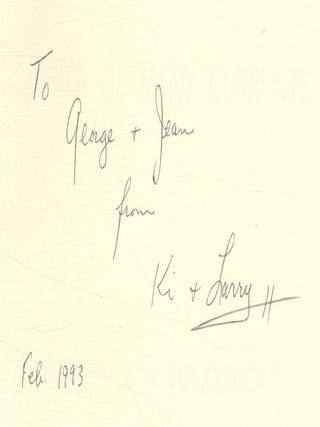 To
George + Jean
from
Ki + Larry
Feb. 1993